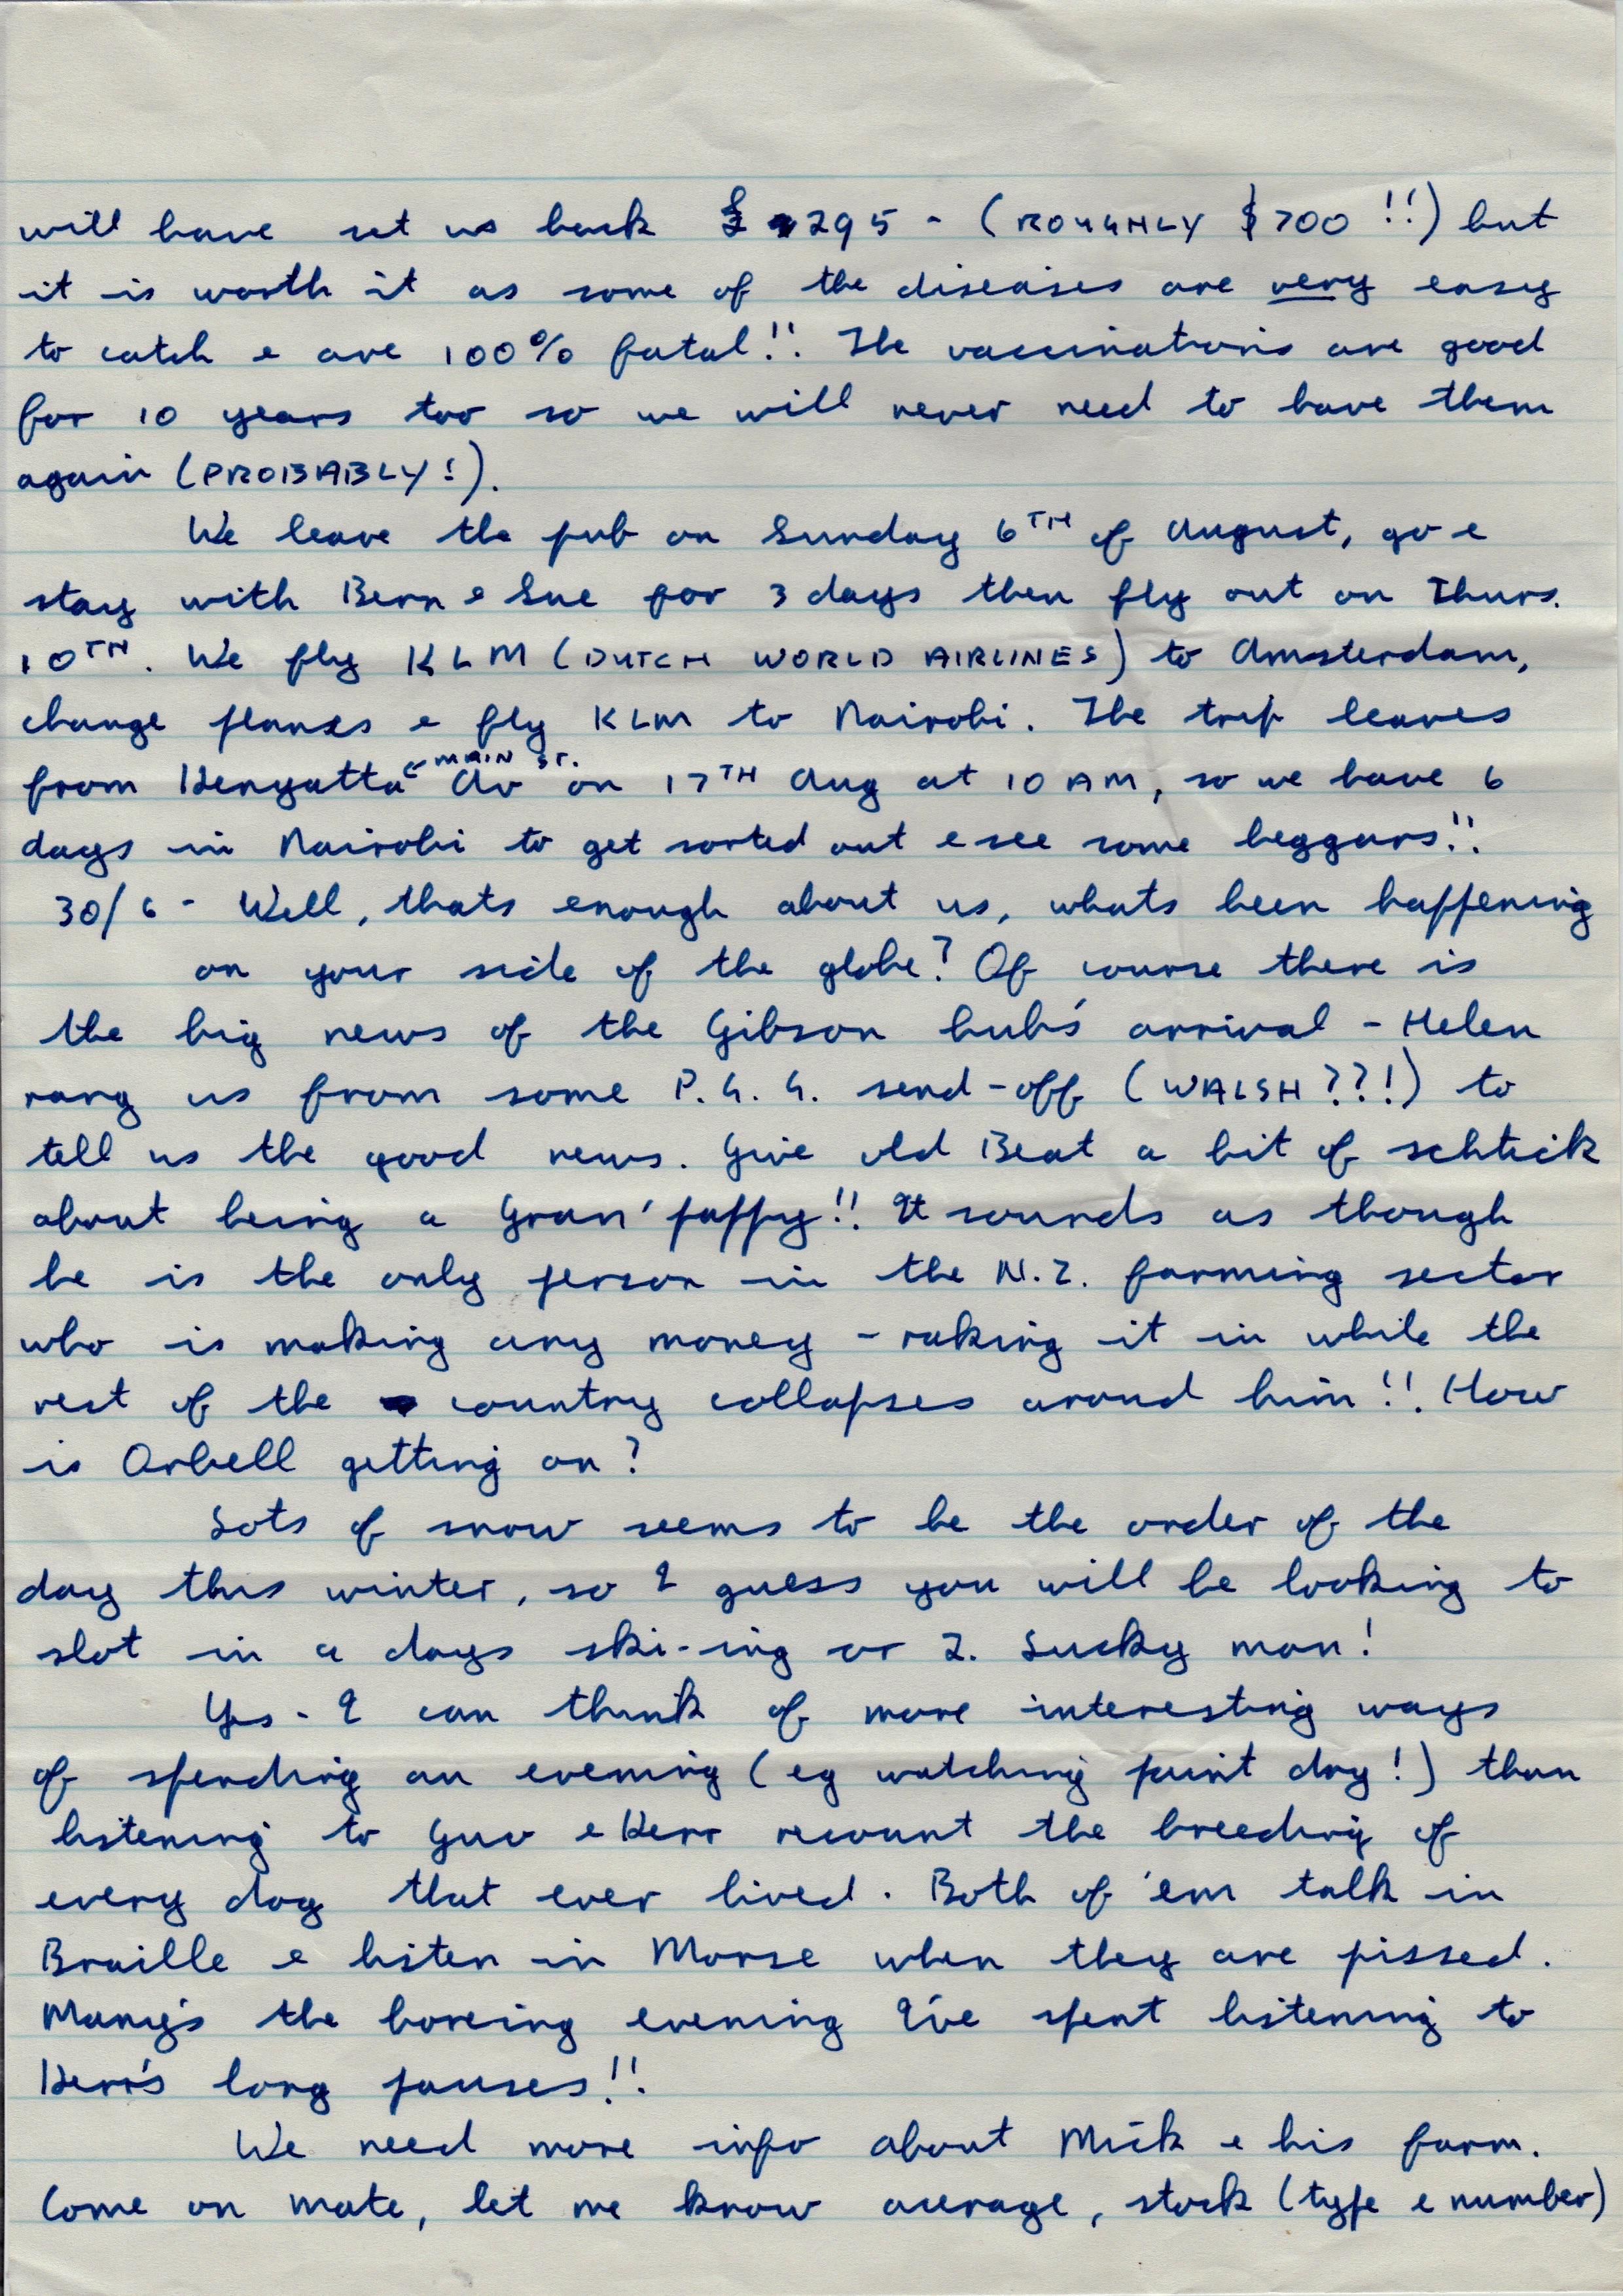 will have set us back £295 - (ROUGHLY $700!!) but
it is worth it as some of the diseases are very easy
to catch & are 100% fatal!! The vaccinations are good
for 10 years too so we will never need to have them
again (PROBABLY!).
We leave the pub on Sunday 6TH of August, go &
stay with Bern & Sue for 3 days then fly out on Thurs.
10TH. We fly KLM (DUTCH WORLD AIRLINES) to Amsterdam,
change planes & fly KLM to Nairobi. The trip leaves
from Kenyatta ← MAIN ST. Av on 17TH Aug at 10 AM, so we have 6
days in Nairobi to get sorted out & see some beggars!!
30/6 - Well, thats enough about us, whats been happening
on your side of the globe? Of course there is
the big news of the Gibson bub's arrival - Helen
rang us from some P.G.G. send-off (WALSH??!) to
tell us the good news. Give old Beat a bit of schtick
about being a Gran'pappy!! It sounds as though
he is the only person in the N.Z. farming sector
who is making any money - raking it in while the
rest of the country collapses around him!! How
is Orbell getting on?
Lots of snow seems to be the order of the
day this winter, so I guess you will be looking to
slot in a days ski-ing or 2. Lucky man!
Yes - I can think of more interesting ways
of spending an evening (eg watching paint dry!) than
listening to Guv & Kerr recount the breeding of
every dog that ever lived. Both of 'em talk in
Braille & listen in Morse when they are pissed.
Many's the boreing evening I've spent listening to
Kerr's long pauses!!
We need more info about Mick & his farm.
Come on mate, let me know acerage, stock (type & number)